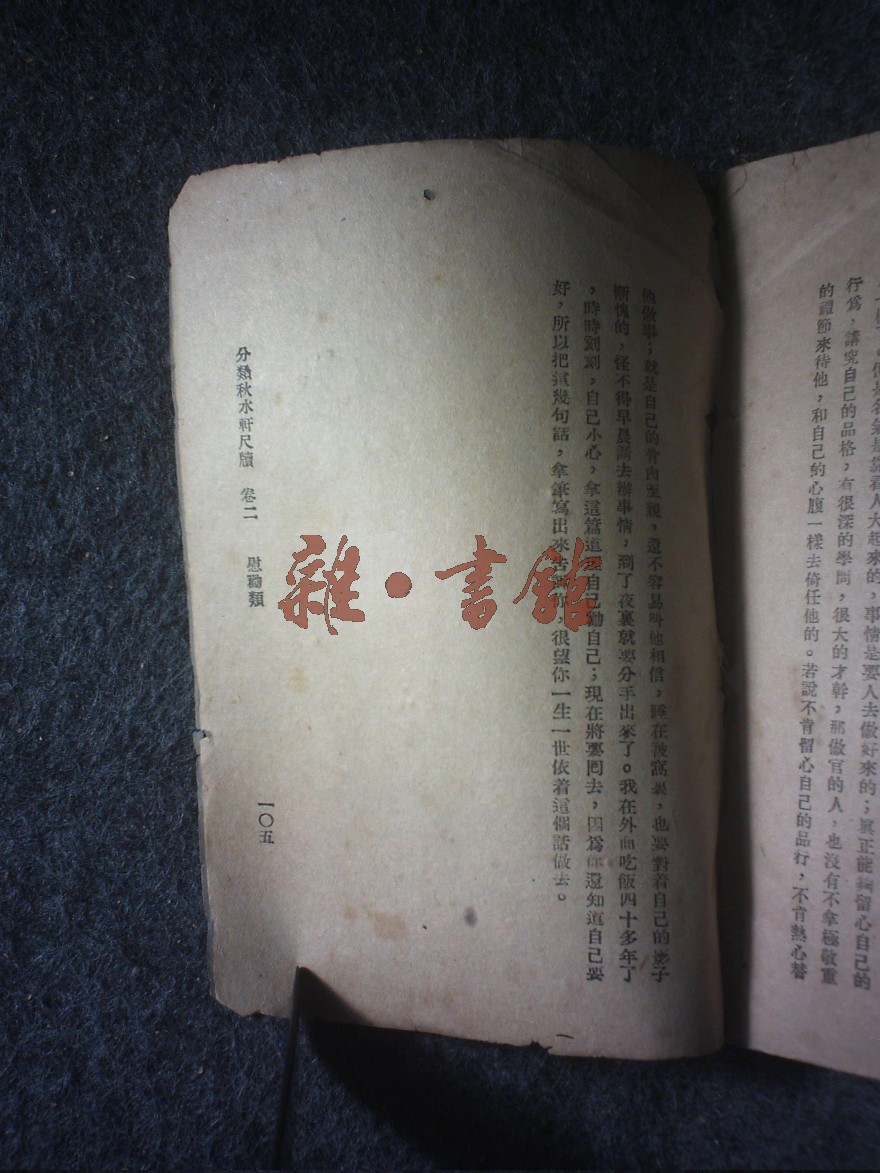 行爲，講究自己的品格，有很深的學問，很大的才幹，那做官的人，也沒有不拿極敬重
的禮節來待他，和自己的心腹一樣去倚任他的。若說不肯留心自己的品行，不肯熱心替
他做事；就是自己的骨肉至親，還不容易叫他相信，睡在被窩裏，也要對着自己的影子
慚愧的，怪不得早晨請去辦事情，到了夜裏就要分手出來了。我在外面吃飯四十多年了
，時時刻刻，自己小心，拿這篇道自己勸自己；現在將要囘去，因爲你還知道自己要
好，所以把這幾句話，拿筆寫出來告你，很望你一生一世依着這個話做去。
分類秋水軒尺牘 卷二 慰勸類
一〇五
雜·書館